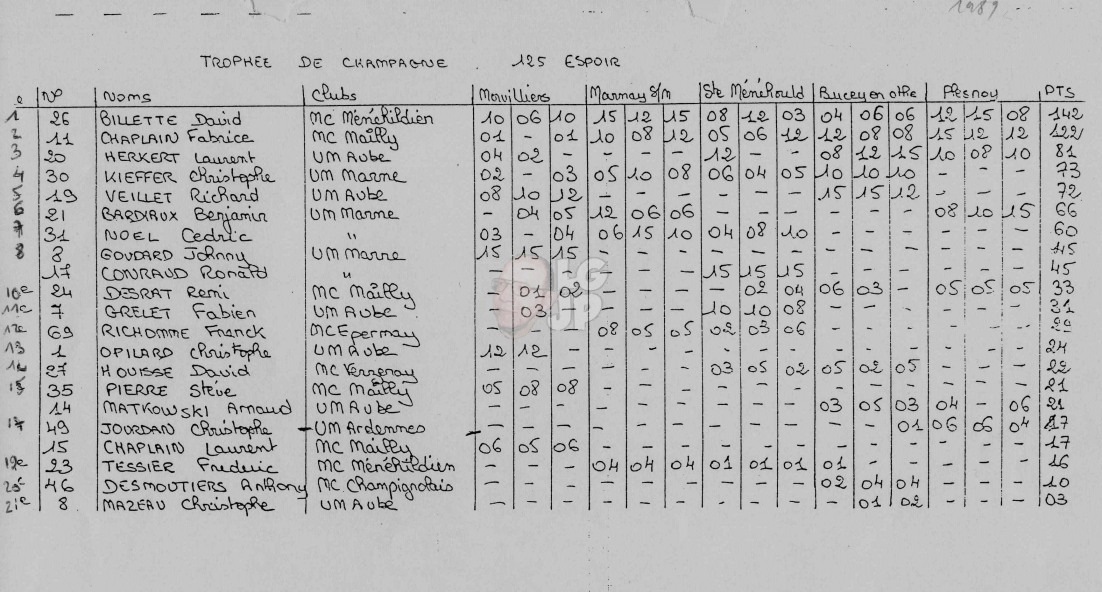 1989
TROPHEE DE CHAMPAGNE 125 ESPOIR
N° Noms Clubs Morvilliers Marnay S/M Ste Ménéhould Bucey en othe Plesnoy PTS
1 26 BILLETTE David MC Ménéhildien 10 06 10 15 12 15 08 12 03 04 06 06 12 15 08 142
2 11 CHAPLAIN Fabrice MC Mailly 01 - 01 10 08 12 05 06 12 12 08 08 15 12 12 122
3 20 HERKERT Laurent UM Aube 04 02 - - - - 12 - - 08 12 15 10 08 10 81
4 30 KIEFFER Christophe UM Marne 02 - 03 05 10 08 06 04 05 10 10 10 - - - 73
5 19 VEILLET Richard UM Aube 08 10 12 - - - - - - 15 15 12 - - - 72
6 21 BARDIAUX Benjamin UM Marne - 04 05 12 06 06 - - - - - - 08 10 15 66
7 31 NOEL Cedric " 03 - 04 06 15 10 04 08 10 - - - - - - 60
8 3 GOUDARD Johnny UM Marne 15 15 15 - - - - - - - - - - - - 45
17 CONRAUD Ronald " - - - - - - 15 15 15 - - - - - - 45
10e 24 DESRAT Remi MC Mailly - 01 02 - - - - 02 04 06 03 - 05 05 05 33
11e 7 GRELET Fabien UM Aube - 03 - - - - 10 10 08 - - - - - - 31
12e 69 RICHOMME Franck MC Epernay - - - 08 05 05 02 03 06 - - - - - - 29
13 1 OPILARD Christophe UM Aube 12 12 - - - - - - - - - - - - - 24
14 27 HOUISSE David MC Verzenay - - - - - - 03 05 02 05 02 05 - - - 22
15 35 PIERRE Stève MC Mailly 05 08 08 - - - - - - - - - - - - 21
14 MATKOWSKI Arnaud UM Aube - - - - - - - - - 03 05 03 04 - 06 21
17 49 JOURDAN Christophe UM Ardennes - - - - - - - - - - - 01 06 06 04 17
15 CHAPLAIN Laurent MC Mailly 06 05 06 - - - - - - - - - - - - 17
19e 23 TESSIER Frederic MC Ménéhildien - - - 04 04 04 01 01 01 01 - - - - - 16
20e 46 DESMOUTIERS Anthony MC Champignolais - - - - - - - - - 02 04 04 - - - 10
21e 8 MAZEAU Christophe UM Aube - - - - - - - - - - 01 02 - - - 03